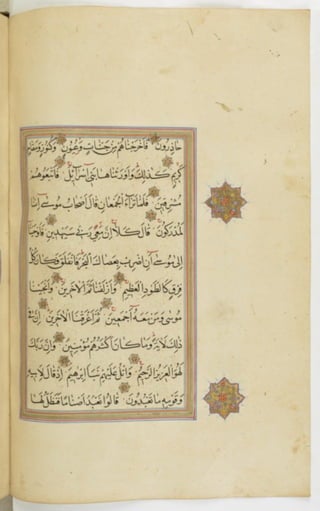 حاذِرُونَ فَأَخْرَجْنَاهُمْ مِنْ جَنَّاتٍ وَعُيُونٍ وَكُنُوزٍ وَمَقَامٍ
كَرِيمٍ كَذٰلِكَ وَأَوْرَثْنَاهَا بَنِي إِسْرَائِيلَ فَأَتْبَعُوهُمْ
مُشْرِقِينَ فَلَمَّا تَرَاءَ الْجَمْعَانِ قَالَ أَصْحَابُ مُوسَى إِنَّا
لَمُدْرَكُونَ قَالَ كَلَّا إِنَّ مَعِيَ رَبِّي سَيَهْدِينِ فَأَوْحَيْنَا
إِلَى مُوسَى أَنِ اضْرِبْ بِعَصَاكَ الْبَحْرَ فَانْفَلَقَ فَكَانَ كُلُّ
فِرْقٍ كَالطَّوْدِ الْعَظِيمِ وَأَزْلَفْنَا ثَمَّ الْآخَرِينَ وَأَنْجَيْنَا
مُوسَى وَمَنْ مَعَهُ أَجْمَعِينَ ثُمَّ أَغْرَقْنَا الْآخَرِينَ إِنَّ فِي
ذٰلِكَ لَآيَةً وَمَا كَانَ أَكْثَرُهُمْ مُؤْمِنِينَ وَإِنَّ رَبَّكَ
لَهُوَ الْعَزِيزُ الرَّحِيمُ وَاتْلُ عَلَيْهِمْ نَبَأَ إِبْرَاهِيمَ إِذْ قَالَ لِأَبِيهِ
وَقَوْمِهِ مَا تَعْبُدُونَ قَالُوا نَعْبُدُ أَصْنَامًا فَنَظَلُّ لَهَا